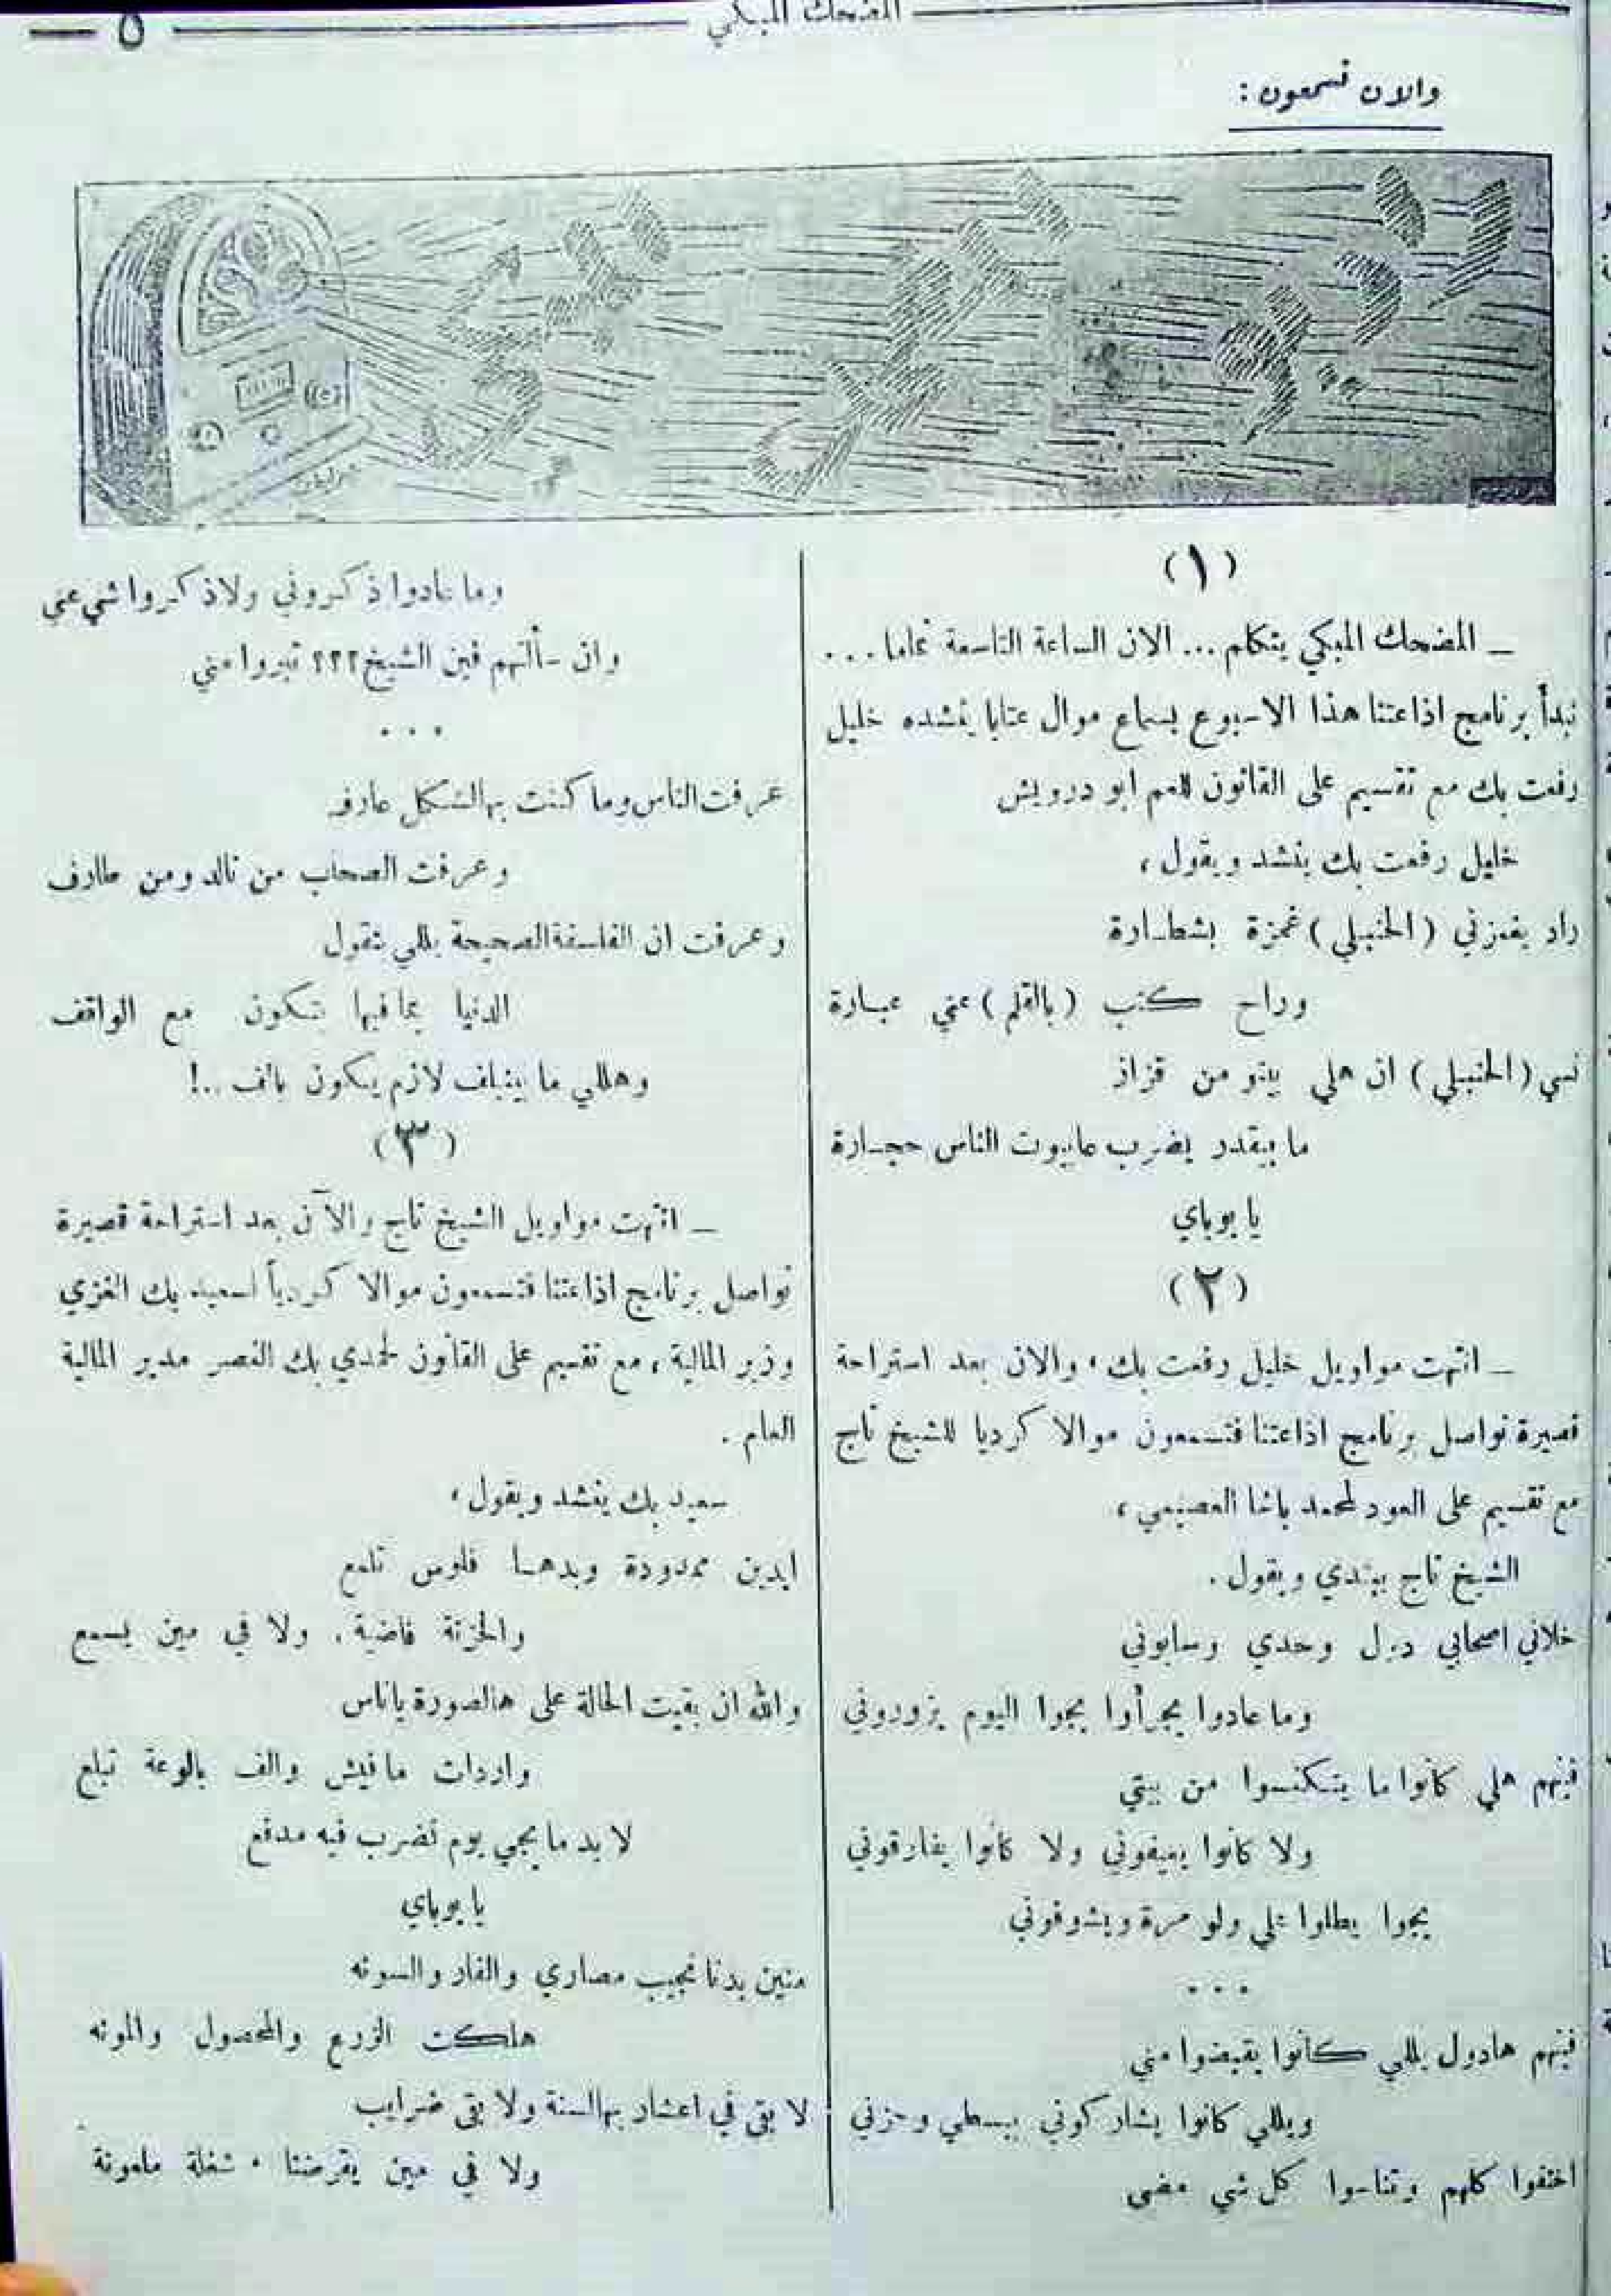 المضحك المبكي
٥
والان تسمعون :
(١)
ــ المضحك المبكي يتكلم ... الان الساعة التاسعة تماما ...
نبدأ برنامج اذاعتنا هذا الاسبوع بسماع موال عتابا ينشده خليل
رفعت بك مع تقسيم على القانون للعم ابو درويش
خليل رفعت بك ينشد ويقول ،
راد يغمزني (الحنبيلي) غمزة بشطارة
وراح كتب (بالقلم) عني عبارة
نسي (الحنبيلي) ان هلي بيتو من قزاز
ما بيقدر يضرب عابيوت الناس حجارة
يا بوباي
(٢)
ــ انتهت مواويل خليل رفعت بك ، والان بعد استراحة
قصيرة نواصل برنامج اذاعتنا فتسمعون موالا كرديا للشيخ تاج
مع تقسيم على العود لمحمد باشا العصيمي ،
الشيخ تاج يبتدي ويقول .
خلاني اصحابي وحدي وسابوني
وما عادوا يجرأوا يجوا اليوم يزوروني
فينهم هلي كانوا ما يتكنسوا من بيتي
ولا كانوا يعيفوني ولا كانوا يفارقوني
يجوا يطلوا علي ولو مرة ويشوفوني
...
فينهم هادول يللي كانوا يقبضوا مني
ويللي كانوا يشاركوني ببسطي وحزني
اختفوا كلهم وتناسوا كل شي مضى
وما عادوا ذكروني ولا ذكروا شي عني
وان سألتهم فين الشيخ ؟؟؟ تبروا مني
...
عرفت الناس وما كنت بهالشكل عارف
وعرفت الصحاب من تالد ومن طارف
وعرفت ان الفلسفة الصحيحة يللي بتقول
الدنيا بما فيها بتكون مع الواقف
وهللي ما بينلف لازم يكون بالف ..!
(٣)
ــ انتهت مواويل الشيخ تاج والآن بعد استراحة قصيرة
نواصل برنامج اذاعتنا فتسمعون موالا كردياً لسعيد بك الغزي
وزير المالية ، مع تقسيم على القانون لحمدي بك النصر مدير المالية
العام .
سعيد بك ينشد ويقول ،
ايدين ممدودة وبدهـا فلوس تلمع
والخزنة فاضية . ولا في مين يسمع
والله ان بقيت الحالة على هالصورة ياناس
واردات مافيش والف بالوعة تبلع
لا بد ما يجي يوم نضرب فيه مدفع
يا بوباي
منين بدنا نجيب مصاري والفار والسونه
هلكت الزرع والمحصول والمونه
لا بقى في اعشار بهالسنة ولا بقى ضرايب
ولا في مين يقرضنا . شغلة ملعونة